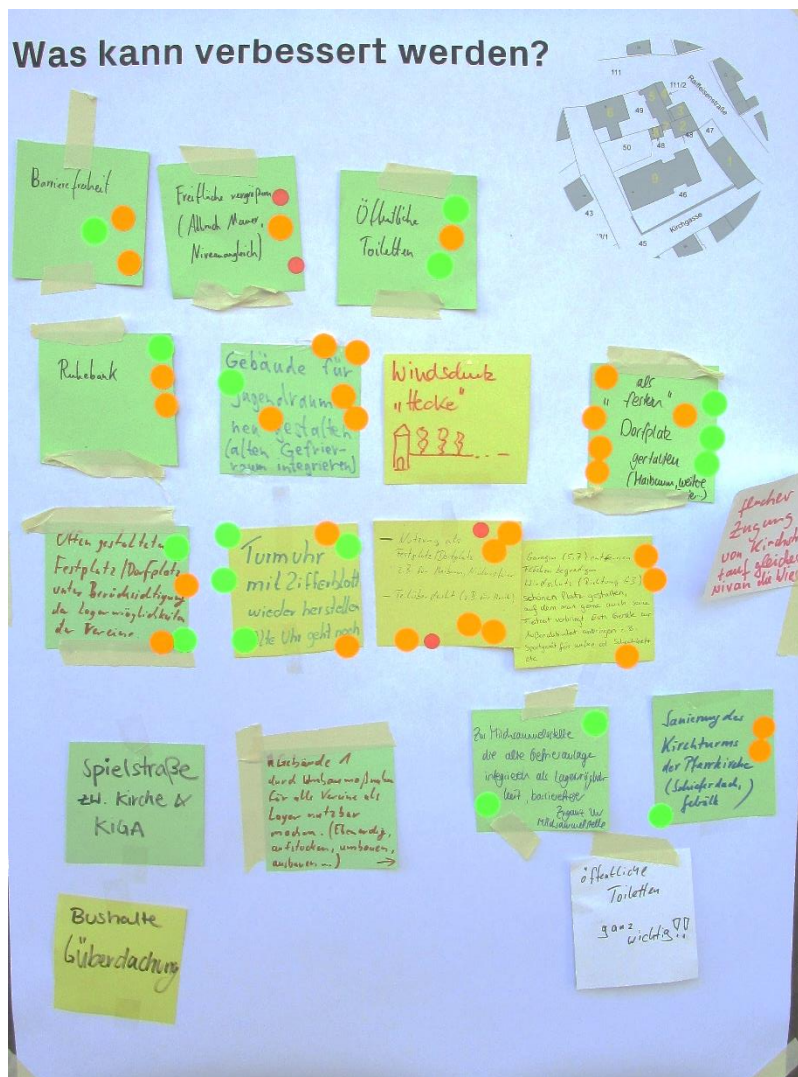 Was kann verbessert werden?
111
111/2
Raiffeisenstraße
49
47
48
48
50
46
43
45
Kirchgasse
Barrierefreiheit
Freifläche vergrößern
(Abbruch Mauer,
Niveauangleich)
Öffentliche
Toiletten
Ruhebank
Gebäude für
Jugendraum
neu gestalten
(alten Gefrier-
raum integrieren)
Windschutz
„Hecke"
als
"festen"
Dorfplatz
gestalten
(Maibaum, weitere
flacher
Zugang
von Kirchst
auf gleiches
Nivau die Wies
Offen gestalteten
Festplatz/Dorfplatz
unter Berücksichtigung
der Lagermöglichkeiten
der Vereine.
Turmuhr
mit Zifferblatt
wieder herstellen
Alte Uhr geht noch
- Nutzung als
Festplatz/Dorfplatz
z.B. für Maibaum,
- Teilüberdacht (z.B. für
Garagen (5,7) entfernen
Flächen begradigen
Windschutz (Richtung
schönen Platz gestalten,
auf dem man gerne auch seine
Freizeit verbringt. Evtl. Geräte zur
anbringen z.B.
Sportgerät für
etc.
Spielstraße
zw. Kirche &
KiGA
Gebäude 1
durch Umbaumaßnahm
für alle Vereine als
Lager nutzbar
machen. (Ebenerdig,
aufstocken, umbauen,
ausbauen...)
→
Zu Milchsammelstelle
die alte Gefrieranlage
integrieren als Lagermöglich-
keit, barrierefreier
Zugang zur
Milchsammelstelle
Sanierung des
Kirchturms
der Pfarrkirche
(Schieferdach,
Gebälk)
öffentliche
Toiletten
ganz
wichtig!!
Bushalte
Überdachung